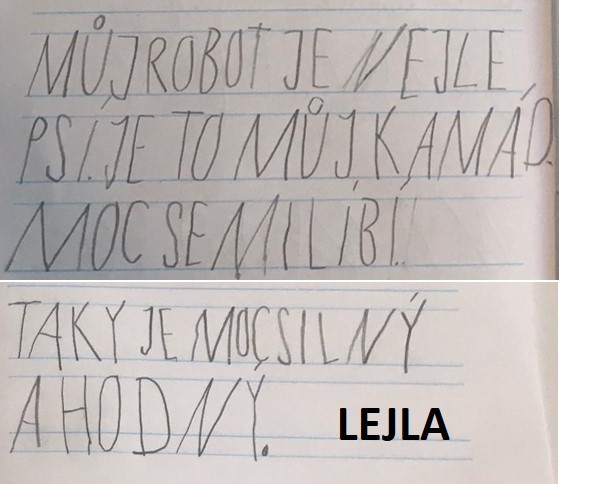 MŮJ ROBOT JE NEJLE
PSÍ. JE TO MŮJ KAMÁD.
MOC SE MI LÍBÍ.
TAKY JE MOC SILNÝ
A HODNÝ.
LEJLA